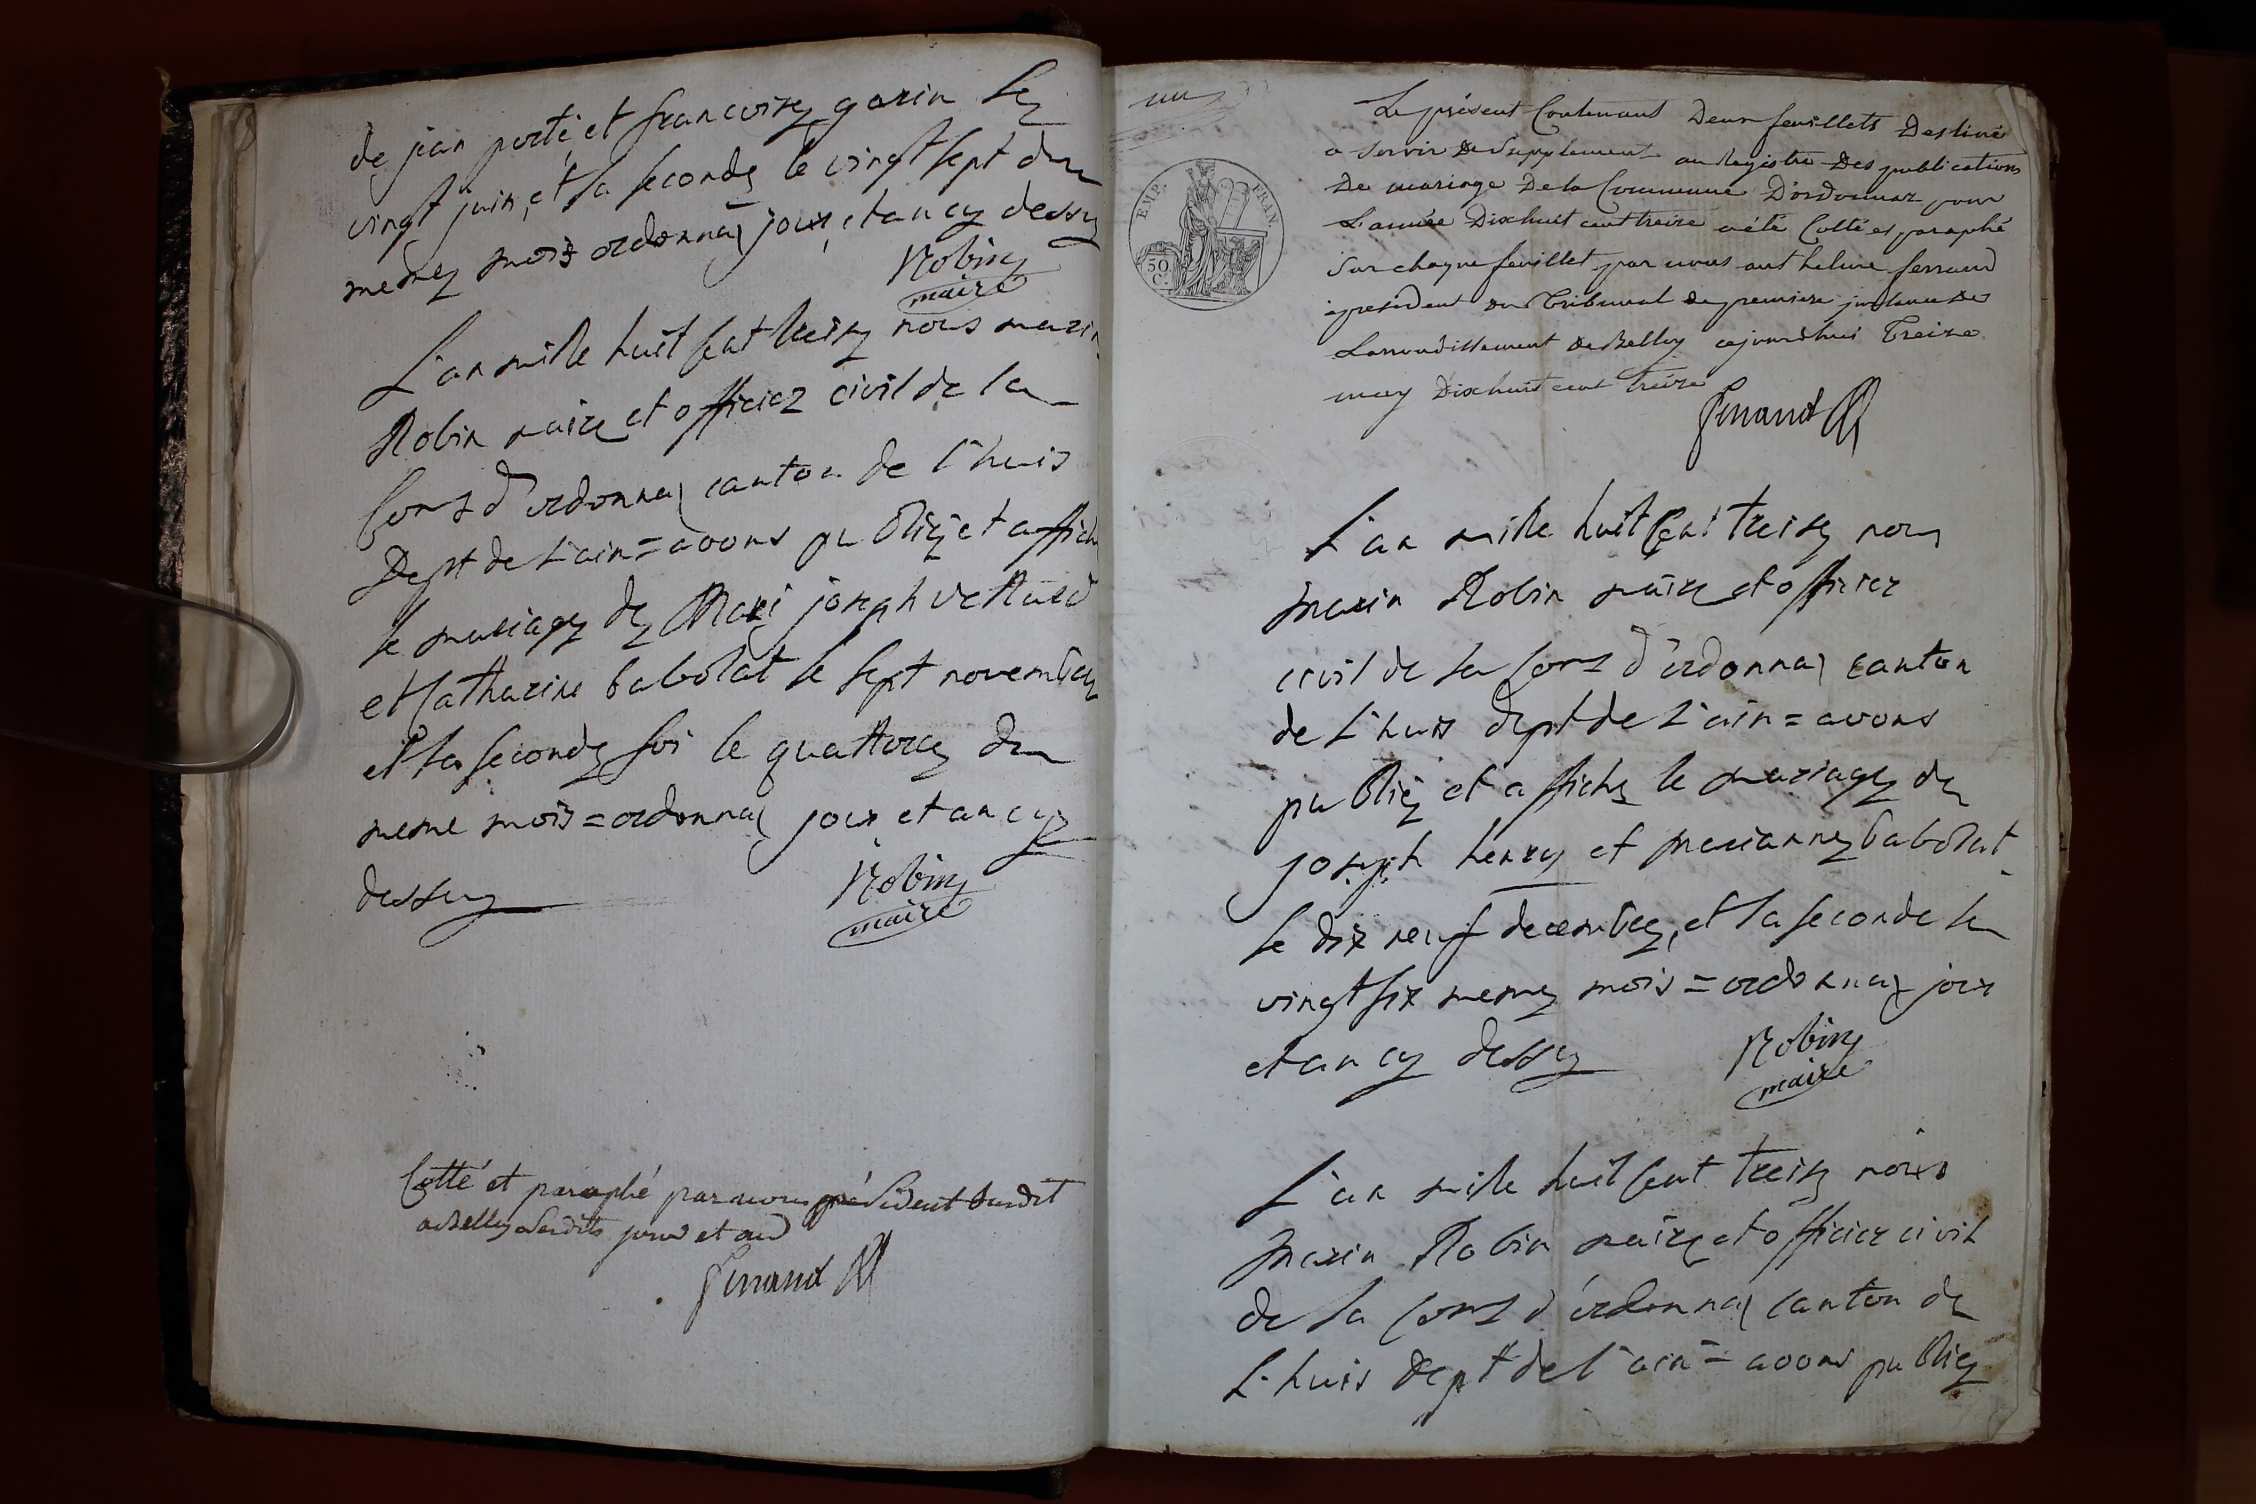 de jean porte, et francoise garin le
vingt juin, et la seconde le vingt sept du
meme mois ordonnaz jour, et an cy dessu
Robin
maire
L'an mille huit cent treize nous marin
Robin maire et officier civil de la
Com.e d'ordonnaz canton de l'huis
Dept de L'ain = avons publié et affich
le mariage de joseph
et Catharine babolat le sept novembre
et la seconde foi le quattorze du
meme mois = ordonnaz jour et an cy
dessu
Robin
maire
Cotté et paraphé par nous président Susdit
a Belley lesdits jour et an
Ferrand
un
EMP. FRAN.
50 C.
Le présent Contenant Deux feuillets Destiné
a servir De Supplement au Registre Des publications
De mariage De la Commune D'ordonnaz pour
L'année Dixhuit cent treize a été Cotté et paraphé
Sur chaque feuillet par nous anthelme ferrand
président du Tribunal de premiere instance De
L'arrondissement de Belley cejourdhui Treize
may Dixhuit cent treize
Ferrand
L'an mille huit Cent treize nous
marin Robin maire et officier
civil de la Com.e d'ordonnaz canton
de L'huis dept de L'ain = avons
publié et affiche le mariage de
joseph henry et marianne babolat
le dix neuf decembre, et la seconde le
vingt six meme mois = ordonnaz jour
et an cy dessu
Robin
maire
L'an mille huit Cent treize nous
marin Robin maire et officier civil
de la Com.e d'ordonnaz canton de
L'huis Dept de l'ain = avons publié